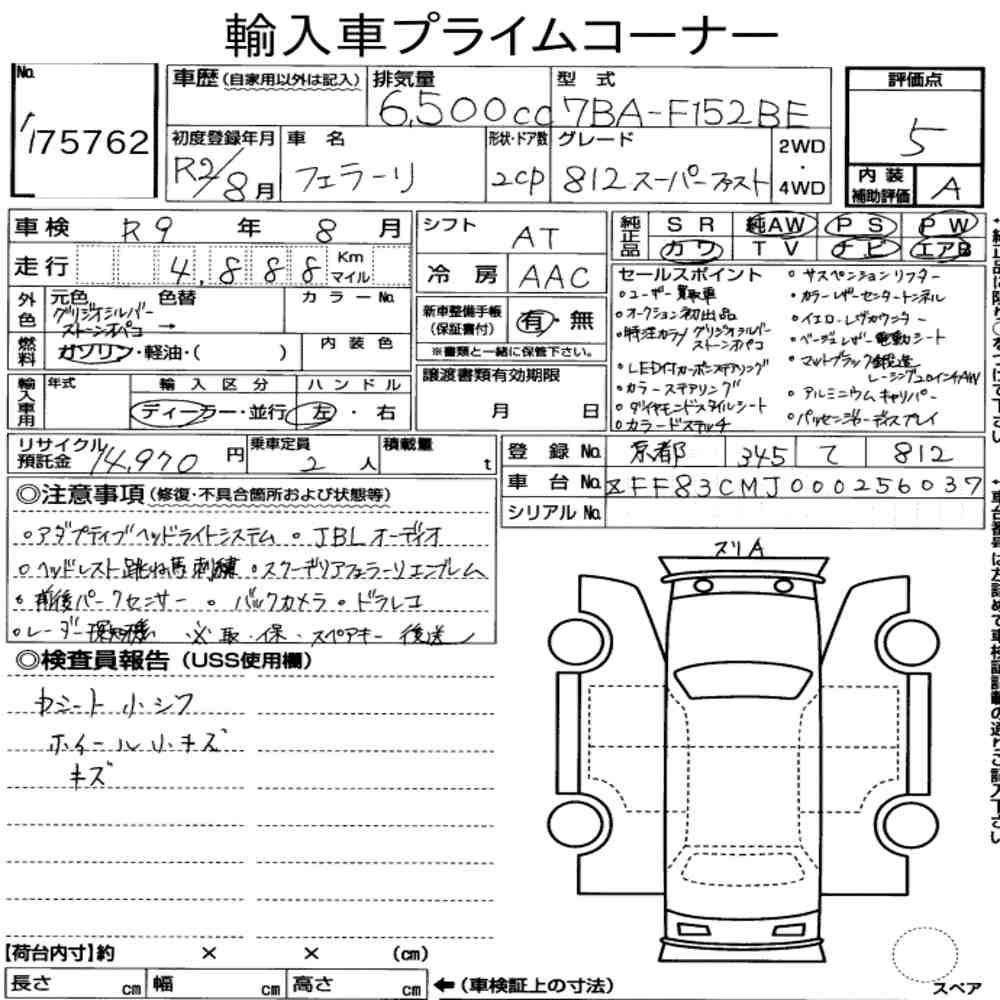 輸入車プライムコーナー
No.
75762
車歴(自家用以外は記入)
排気量
6,500cc
型式
7BA-F152BE
評価点
5
初度登録年月
R2/8月
車名
フェラーリ
形状・ドア数
2cp
グレード
812スーパーファスト
2WD
・
4WD
内装
補助評価
A
車検 R9年 8月
走行 4,888 Km
マイル
シフト
AT
冷房 AAC
純正品 SR 純AW PS PW
カワ TV ナビ エアB
外色 元色 色替 カラーNo.
グリジオシルバー
ストーンオパコ →
燃料 ガソリン・軽油・( )
内装色
新車整備手帳
(保証書付)
有・無
※書類と一緒に保管下さい。
輸入車用 年式 輸入区分 ハンドル
ディーラー・並行 左・右
譲渡書類有効期限
月 日
セールスポイント
◦ユーザー買取車
◦オークション初出品
◦特注カラー/グリジオシルバー
ストーンオパコ
◦LED付カーボンステアリング
◦カラーステアリング
◦ダイヤモンドスタイルシート
◦カラードステッチ
◦サスペンションリフター
◦カラーレザーセンタートンネル
◦イエローレヴカウンター
◦ベージュレザー電動シート
◦マットブラック鍛造
レーシング20インチAW
◦アルミニウムキャリパー
◦パッセンジャーディスプレイ
リサイクル
預託金 14,970円
乗車定員
2人
積載量
t
登録No. 京都 345 て 812
車台No. ZFF83CMJ000256037
シリアルNo.
◎注意事項(修復・不具合箇所および状態等)
◦アダプティブヘッドライトシステム ◦JBLオーディオ
◦ヘッドレスト跳ね馬刺繍 ◦スクーデリアフェラーリエンブレム
◦前後パークセンサー ◦バックカメラ ◦ドラレコ
◦レーダー探知機 ※取・保・スペアキー後送
◎検査員報告(USS使用欄)
カシート小シワ
ホイール小キズ
キズ
スリA
スペア
【荷台内寸】約 × × (cm)
長さ cm 幅 cm 高さ cm ←(車検証上の寸法)